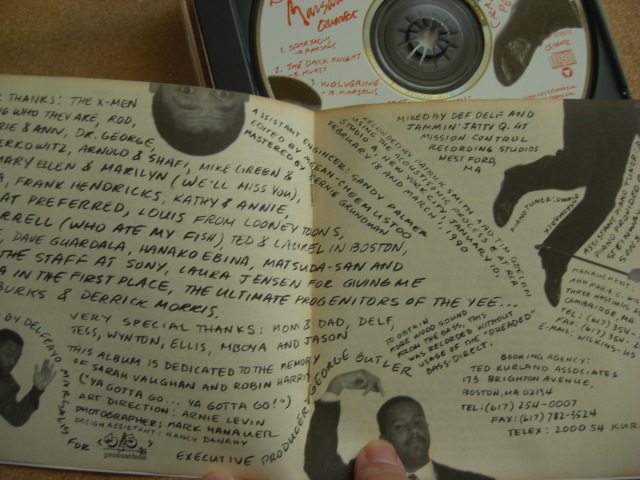 Marsalis
Quartet
1. SPARTACUS
B. MARSALIS
2. THE DARK KNIGHT
B. HURST
3. WOLVERINE
B. MARSALIS
THANKS: THE X-MEN
WHO THEY ARE, ROD,
& ANN, DR. GEORGE,
BERKOWITZ, ARNOLD & SHAFI, MIKE GREEN &
MARY ELLEN & MARILYN (WE'LL MISS YOU),
FRANK HENDRICKS, KATHY & ANNIE,
AT PREFERRED, LOUIS FROM LOONEY TOONS,
(WHO ATE MY FISH), TED & LAUREL IN BOSTON,
DAVE GUARDALA, HANAKO EBINA, MATSUDA-SAN AND
THE STAFF AT SONY, LAURA JENSEN FOR GIVING ME
IN THE FIRST PLACE, THE ULTIMATE PROGENITORS OF THE YEE...
BURKS & DERRICK MORRIS.
VERY SPECIAL THANKS: MOM & DAD, DELF,
TESS, WYNTON, ELLIS, MBOYA AND JASON
THIS ALBUM IS DEDICATED TO THE MEMORY
OF SARAH VAUGHAN AND ROBIN HARRIS
("YA GOTTA GO... YA GOTTA GO!")
ART DIRECTION: ARNIE LEVIN
PHOTOGRAPHER: MARK HANAUER
DESIGN ASSISTANT: NANCY DANAHY
BY DELFEAYO MARSALIS
FOR
productions
EXECUTIVE PRODUCER GEORGE BUTLER
ASSISTANT ENGINEER: GANDY PALMER
EDITED BY
MASTERED BY BERNIE GRUNDMAN
RECORDED BY PATRICK SMITH AND TIM GEELAN
USING THE
IN NEW YORK CITY, JANUARY 10,
FEBRUARY 18 AND MARCH 1, 1990
MIXED BY DEF DELF AND
JAMMIN' JATTY Q. AT
MISSION CONTROL
RECORDING STUDIOS
WESTFORD,
MA
PIANO TUNER:
TO OBTAIN
MORE WOOD SOUND
FROM THE BASS, THIS
WAS RECORDED WITHOUT
USAGE OF THE "DREADED"
BASS-DIRECT.
CAMBRIDGE, MA
TEL: (617) 354-
FAX: (617) 354-
E-MAIL: WILKINS-US
BOOKING AGENCY:
TED KURLAND ASSOCIATES
173 BRIGHTON AVENUE,
BOSTON, MA 02134
TEL: (617) 254-0007
FAX: (617) 782-3524
TELEX: 2000 54 KUR